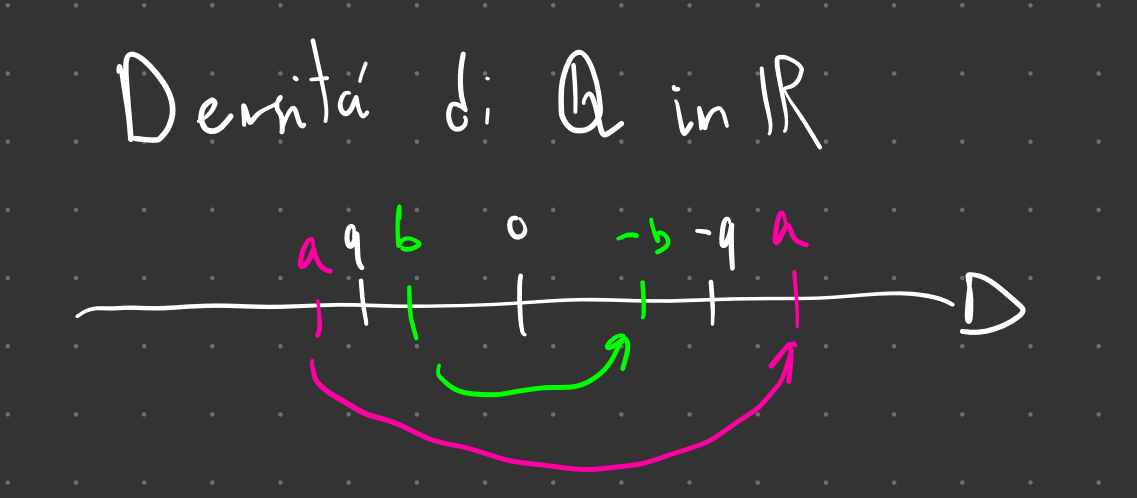 Densitá di Q in R
a q b 0 -b -q a